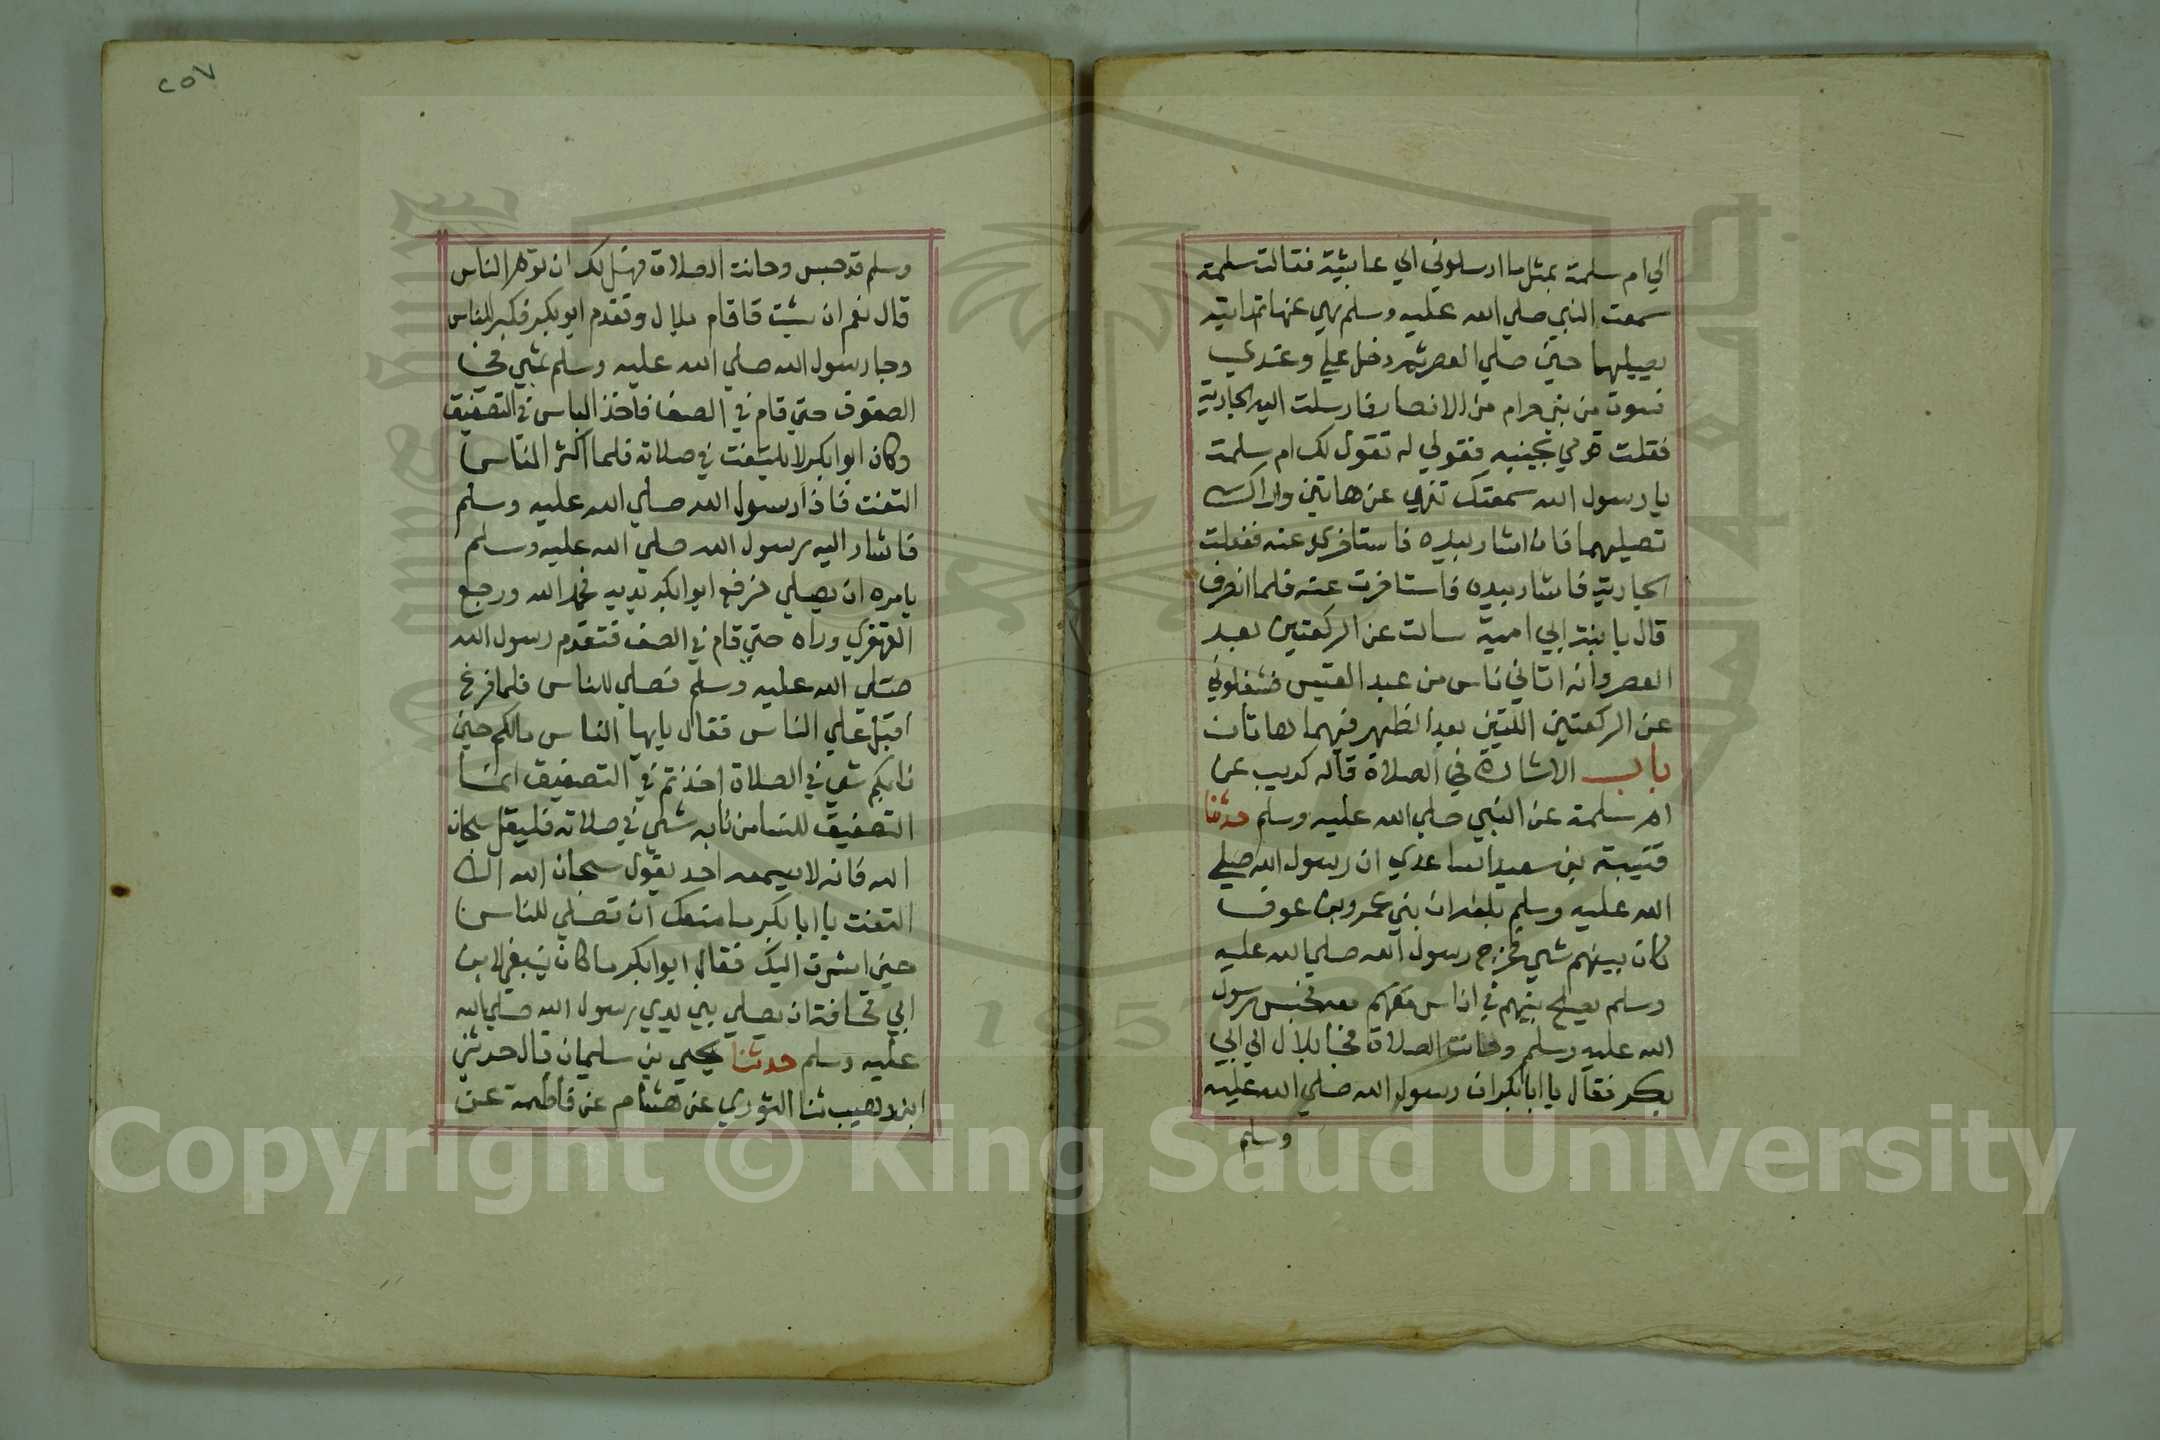 الي ام سلمة بمثل ما ارسلوني الي عايشة فقالت سلمة
سمعت النبي صلي الله عليه وسلم نهي عنها ثم رايته
يصليهما حين صلي العصر ثم دخل علي وعندي
نسوة من بني حرام من الانصار فارسلت اليه الجارية
فقلت قومي بجنبه فقولي له تقول لك ام سلمة
يا رسول الله سمعتك تنهي عن هاتين واراك
تصليهما فان اشار بيده فاستاخري عنه ففعلت
الجارية فاشار بيده فاستاخرت عنه فلما انصرف
قال يا بنت ابي امية سالت عن الركعتين بعد
العصر وانه اتاني ناس من عبد القيس فشغلوني
عن الركعتين اللتين بعد الظهر فهما هاتان
باب الاشارة في الصلاة قاله كريب عن
ام سلمة عن النبي صلي الله عليه وسلم حدثنا
قتيبة بن سعيد الساعدي ان رسول الله صلي
الله عليه وسلم بلغه ان بني عمرو بن عوف
كان بينهم شي فخرج رسول الله صلي الله عليه
وسلم يصلح بينهم في اناس معه فحبس رسول
الله عليه وسلم وحانت الصلاة فجا بلال الي ابي
بكر فقال يا ابا بكر ان رسول الله صلي الله عليه
وسلم
٢٥٧
وسلم قد حبس وحانت الصلاة فهل لك ان توم الناس
قال نعم ان شيت فاقام بلال وتقدم ابو بكر فكبر للناس
وجا رسول الله صلي الله عليه وسلم يمشي في
الصفوف حتي قام في الصف فاخذ الناس في التصفيق
وكان ابو ابكر لا يلتفت في صلاته فلما اكثر الناس
التفت فاذا رسول الله صلي الله عليه وسلم
فاشار اليه رسول الله صلي الله عليه وسلم
يامره ان يصلي فرفع ابو ابكر يديه فحمد الله ورجع
القهقري وراه حتي قام في الصف فتقدم رسول الله
صلي الله عليه وسلم فصلي للناس فلما فرغ
اقبل علي الناس فقال يايها الناس مالكم حين
نابكم شي في الصلاة اخذتم في التصفيق انما
التصفيق للنسا من نابه شي في صلاته فليقل سبحان
الله فانه لا يسمعه احد يقول سبحان الله الا
التفت يا ابا بكر ما منعك ان تصلي للناس
حين اشرت اليك فقال ابو ابكر ما كان ينبغي لابن
ابي قحافة ان يصلي بين يدي رسول الله صلي الله
عليه وسلم حدثنا يحيي بن سليمان قال حدثني
ابن وهيب ثنا الثوري عن هشام عن فاطمة عن
Copyright © King Saud University
1957